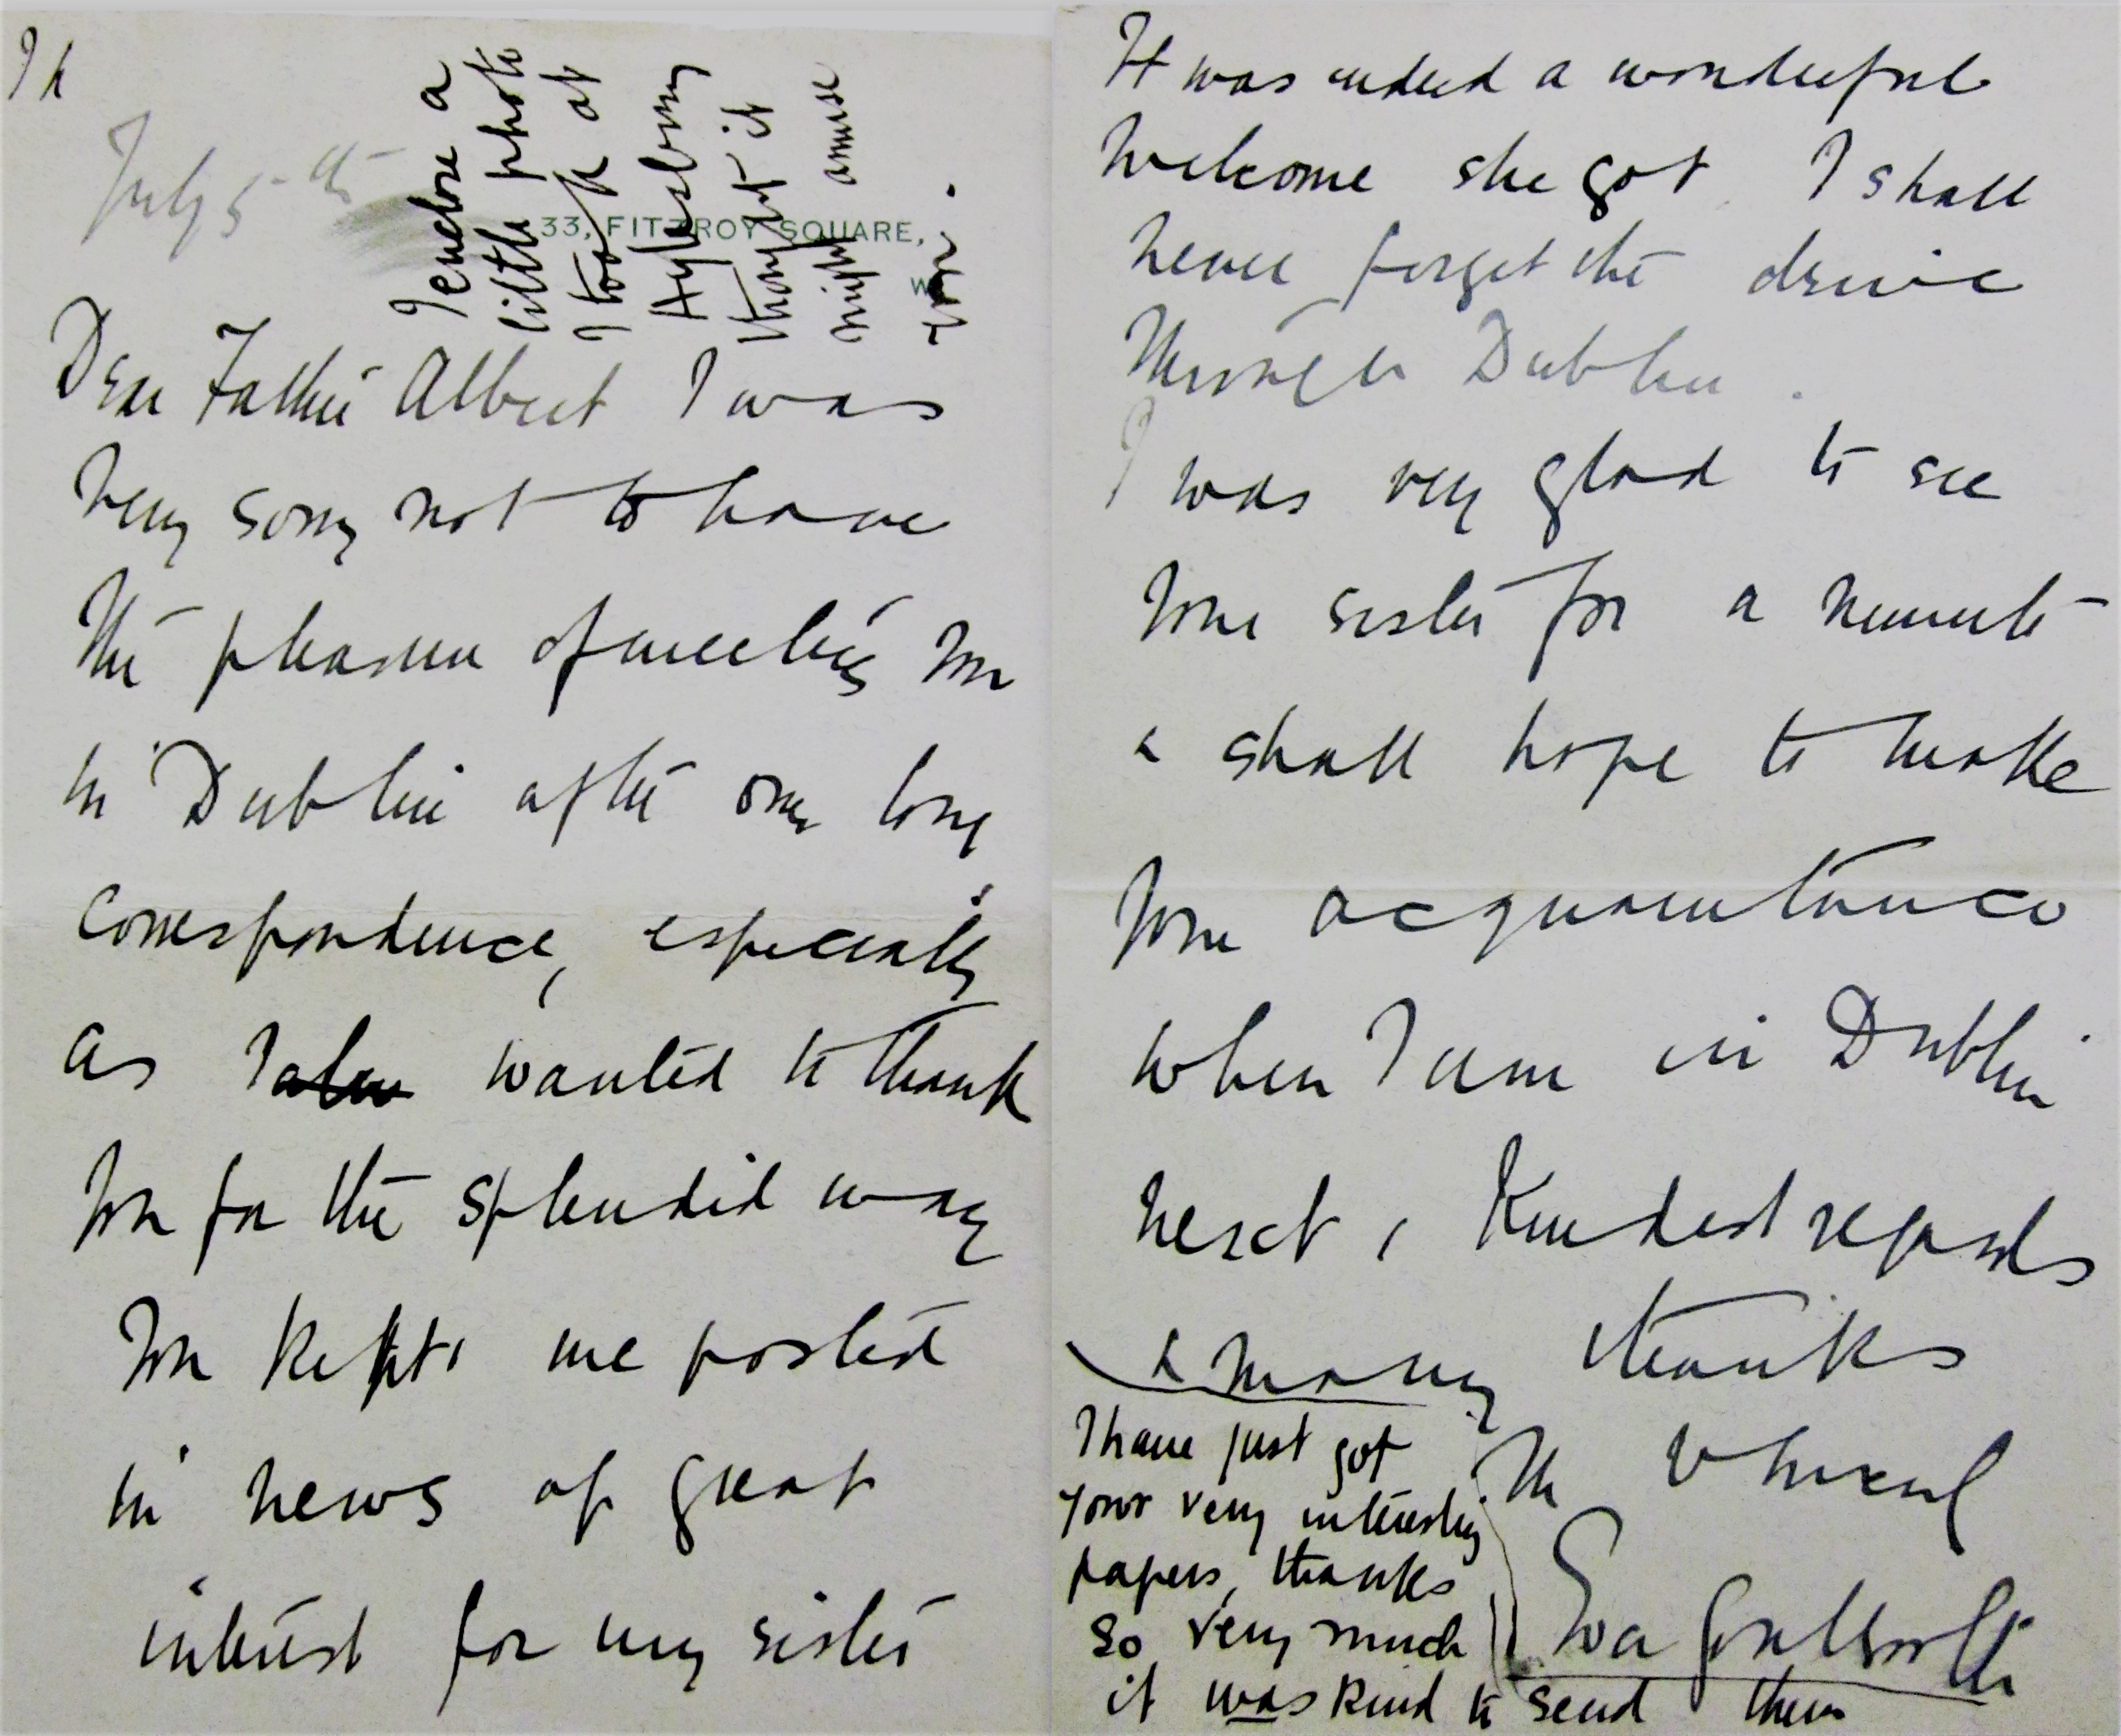 July 5th
33, FITZROY SQUARE,
W.
I enclose a
little photo
I took at
Aylesbury
thought it
might amuse
you.
Dear Father Albert I was
very sorry not to have
the pleasure of meeting you
in Dublin after our long
correspondence, especially
as I also wanted to thank
you for the splendid way
you kept me posted
in news of great
interest for my sister
It was indeed a wonderful
welcome she got. I shall
never forget the drive
through Dublin.
I was very glad to see
your sister for a minute
& shall hope to make
your acquaintance
when I am in Dublin
next, Kindest regards
& many thanks
Eva Gore Booth
I have just got
your very interesting
papers, thanks
so very much
it was kind to send them